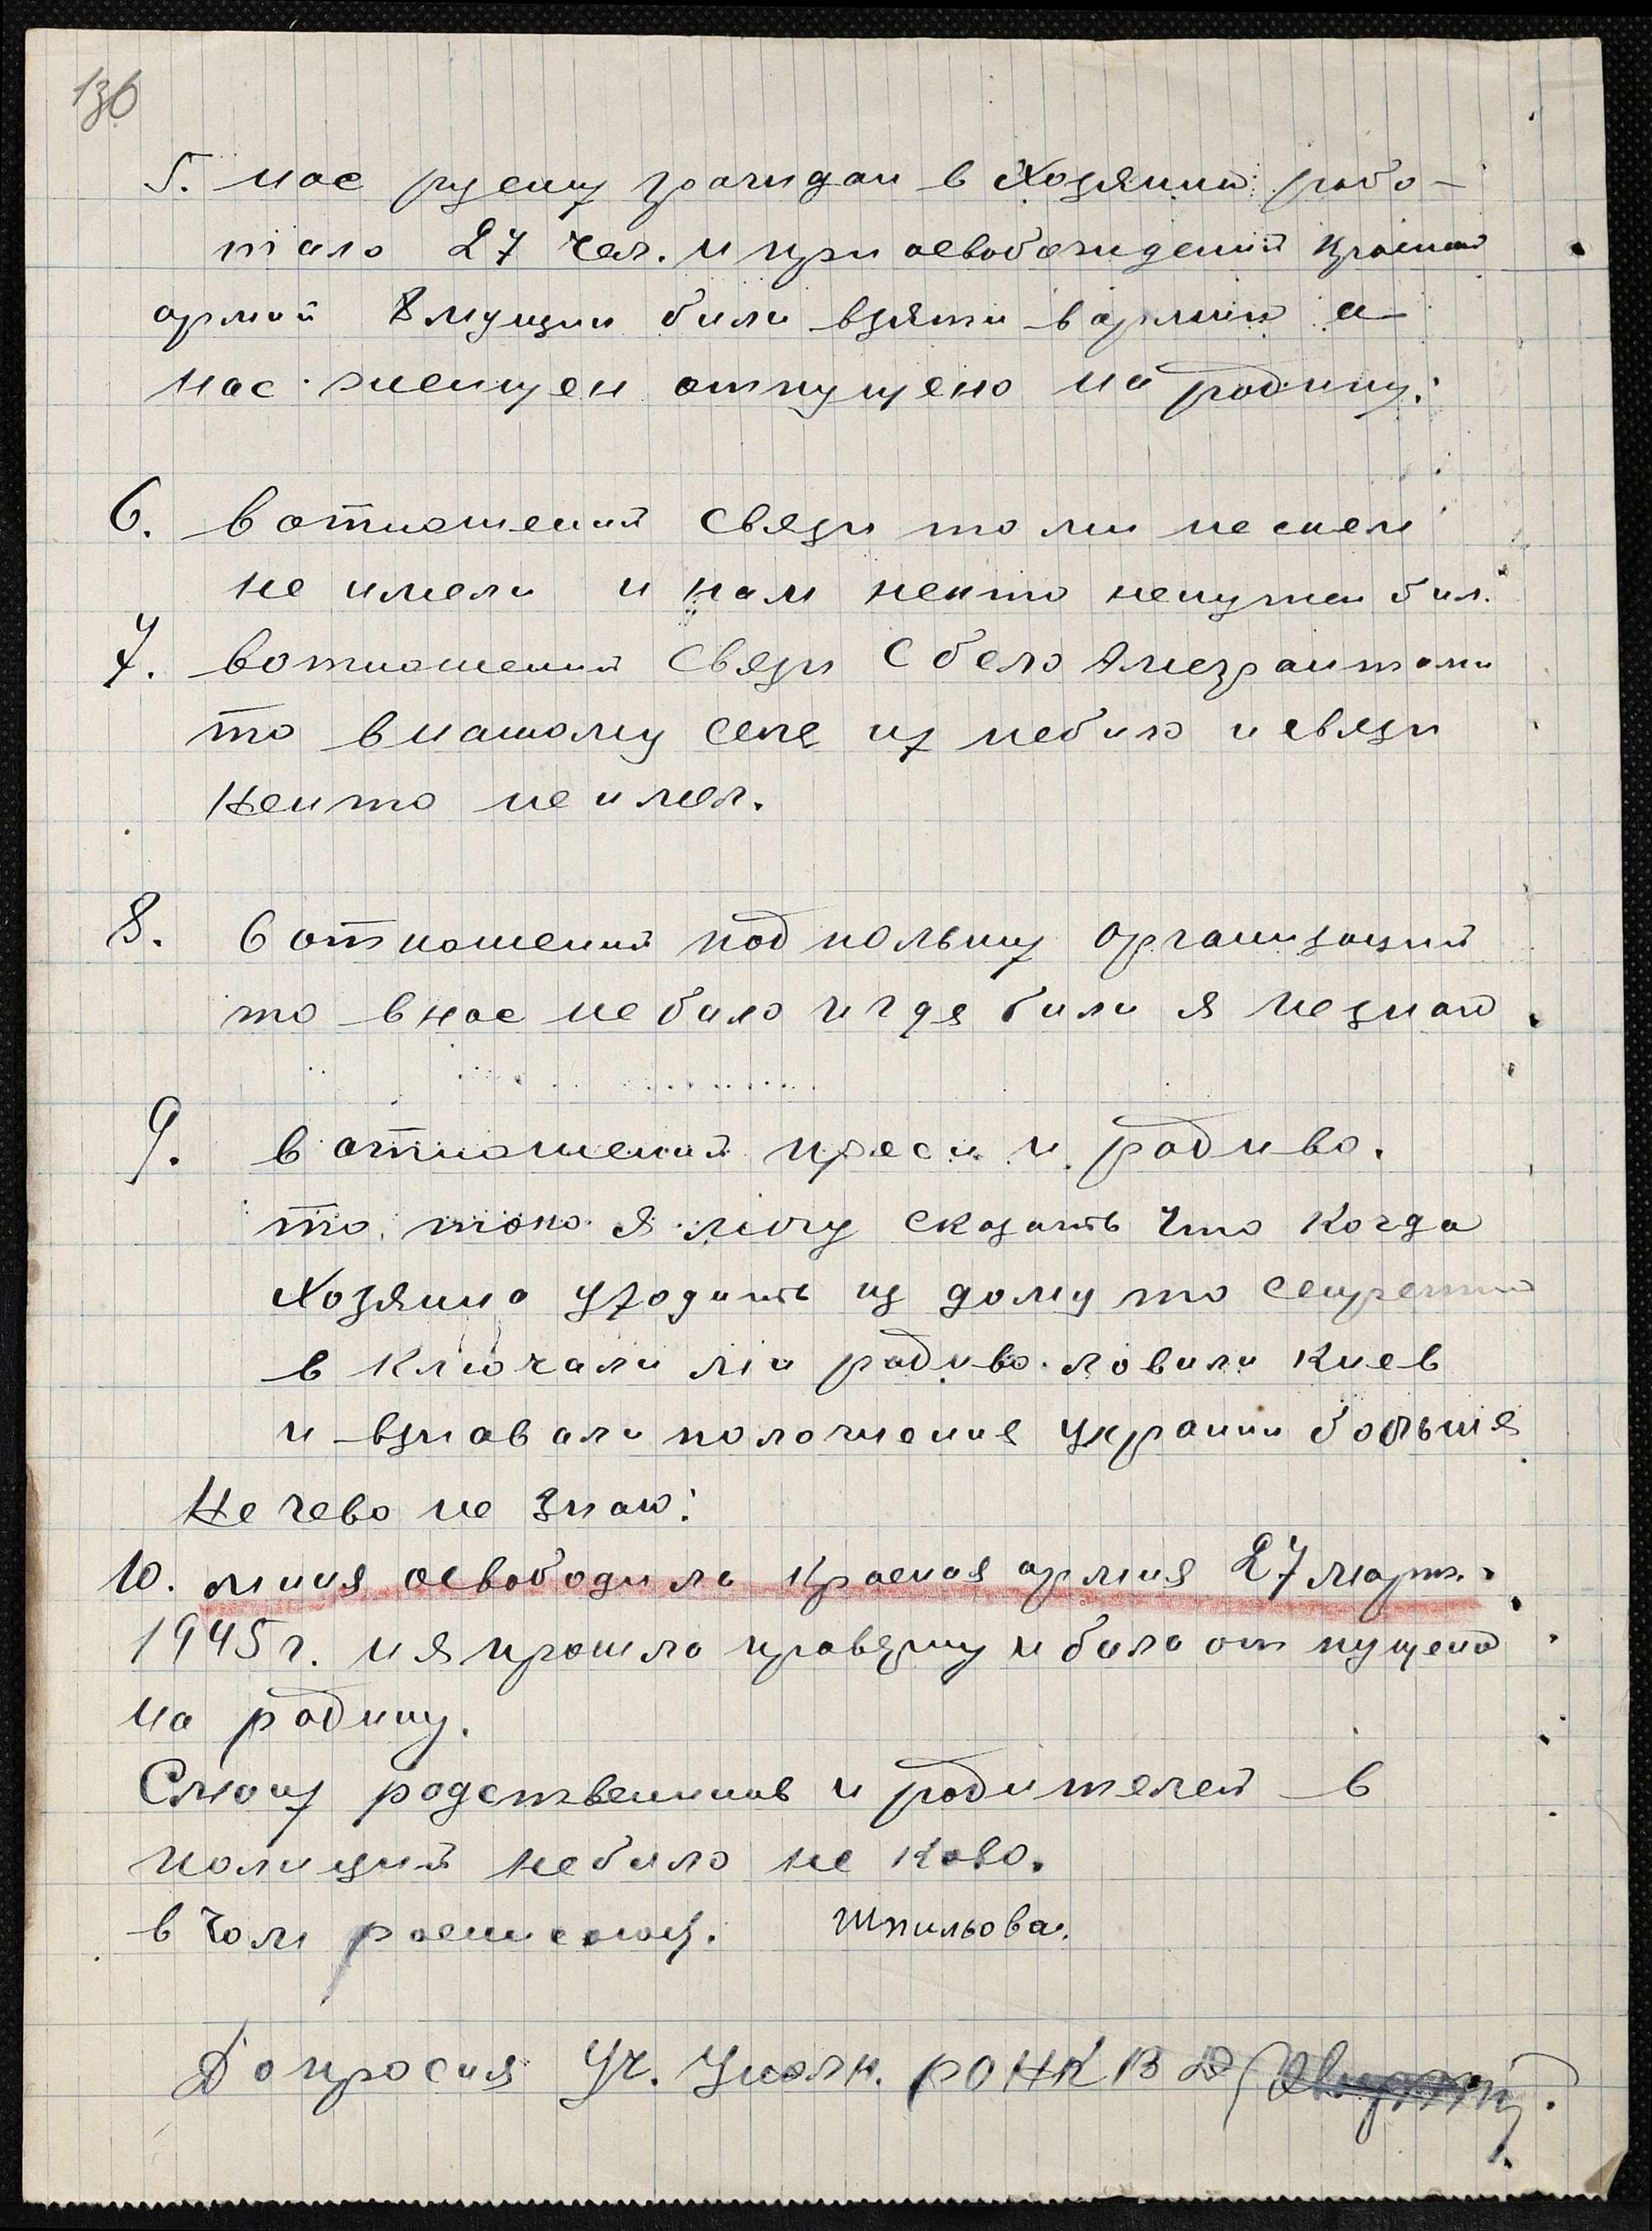 136
5. нас руских грачидан в Хозяина рабо-
тало 27 чел. и при освобожидений красной
армий 8 мущин били взяти в армию а
нас женщен отпущено на родину.
6. в отношений связи то ми не скем
не имели и нам некто ненужен бил.
7. вотношений связи с бело Амегрантами
то внашому селе их небило и связи
некто не имел.
8. в отношений подпольних организаций
то внас не било и где били я незнаю.
9. в отношений преси и радиво.
то токо я могу сказать что когда
Хозяина уходить из дому то секретно
в ключали ми радиво ловили Киев
и взнавали положения украини больше
Не чево не знаю.
10. миня освободила красная армия 27 март.
1945 г. и я прошла правэрку и била от пущена
на родину.
Смоих родственников и родителей в
полиций небило не ково.
в чом росписоюсь. Шпильова.
Допросил Уч. Уполн. РО НКВД